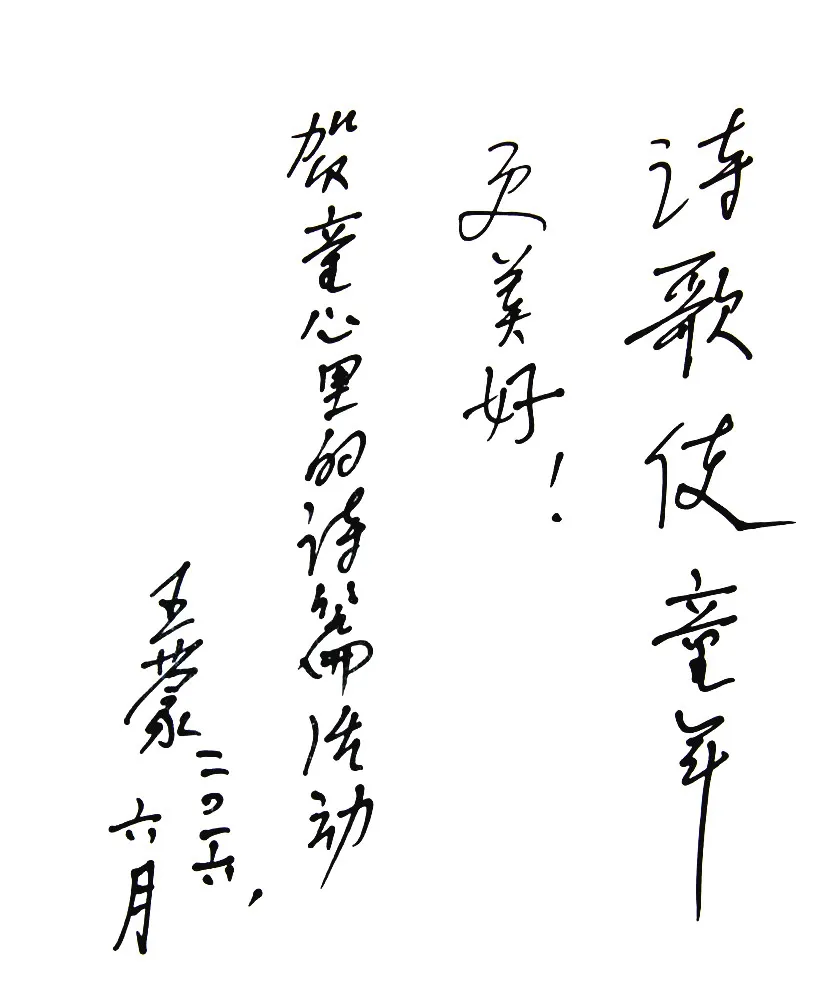 诗歌使童年
更美好！
贺童心里的诗篇活动
王蒙
二〇一六，
六月